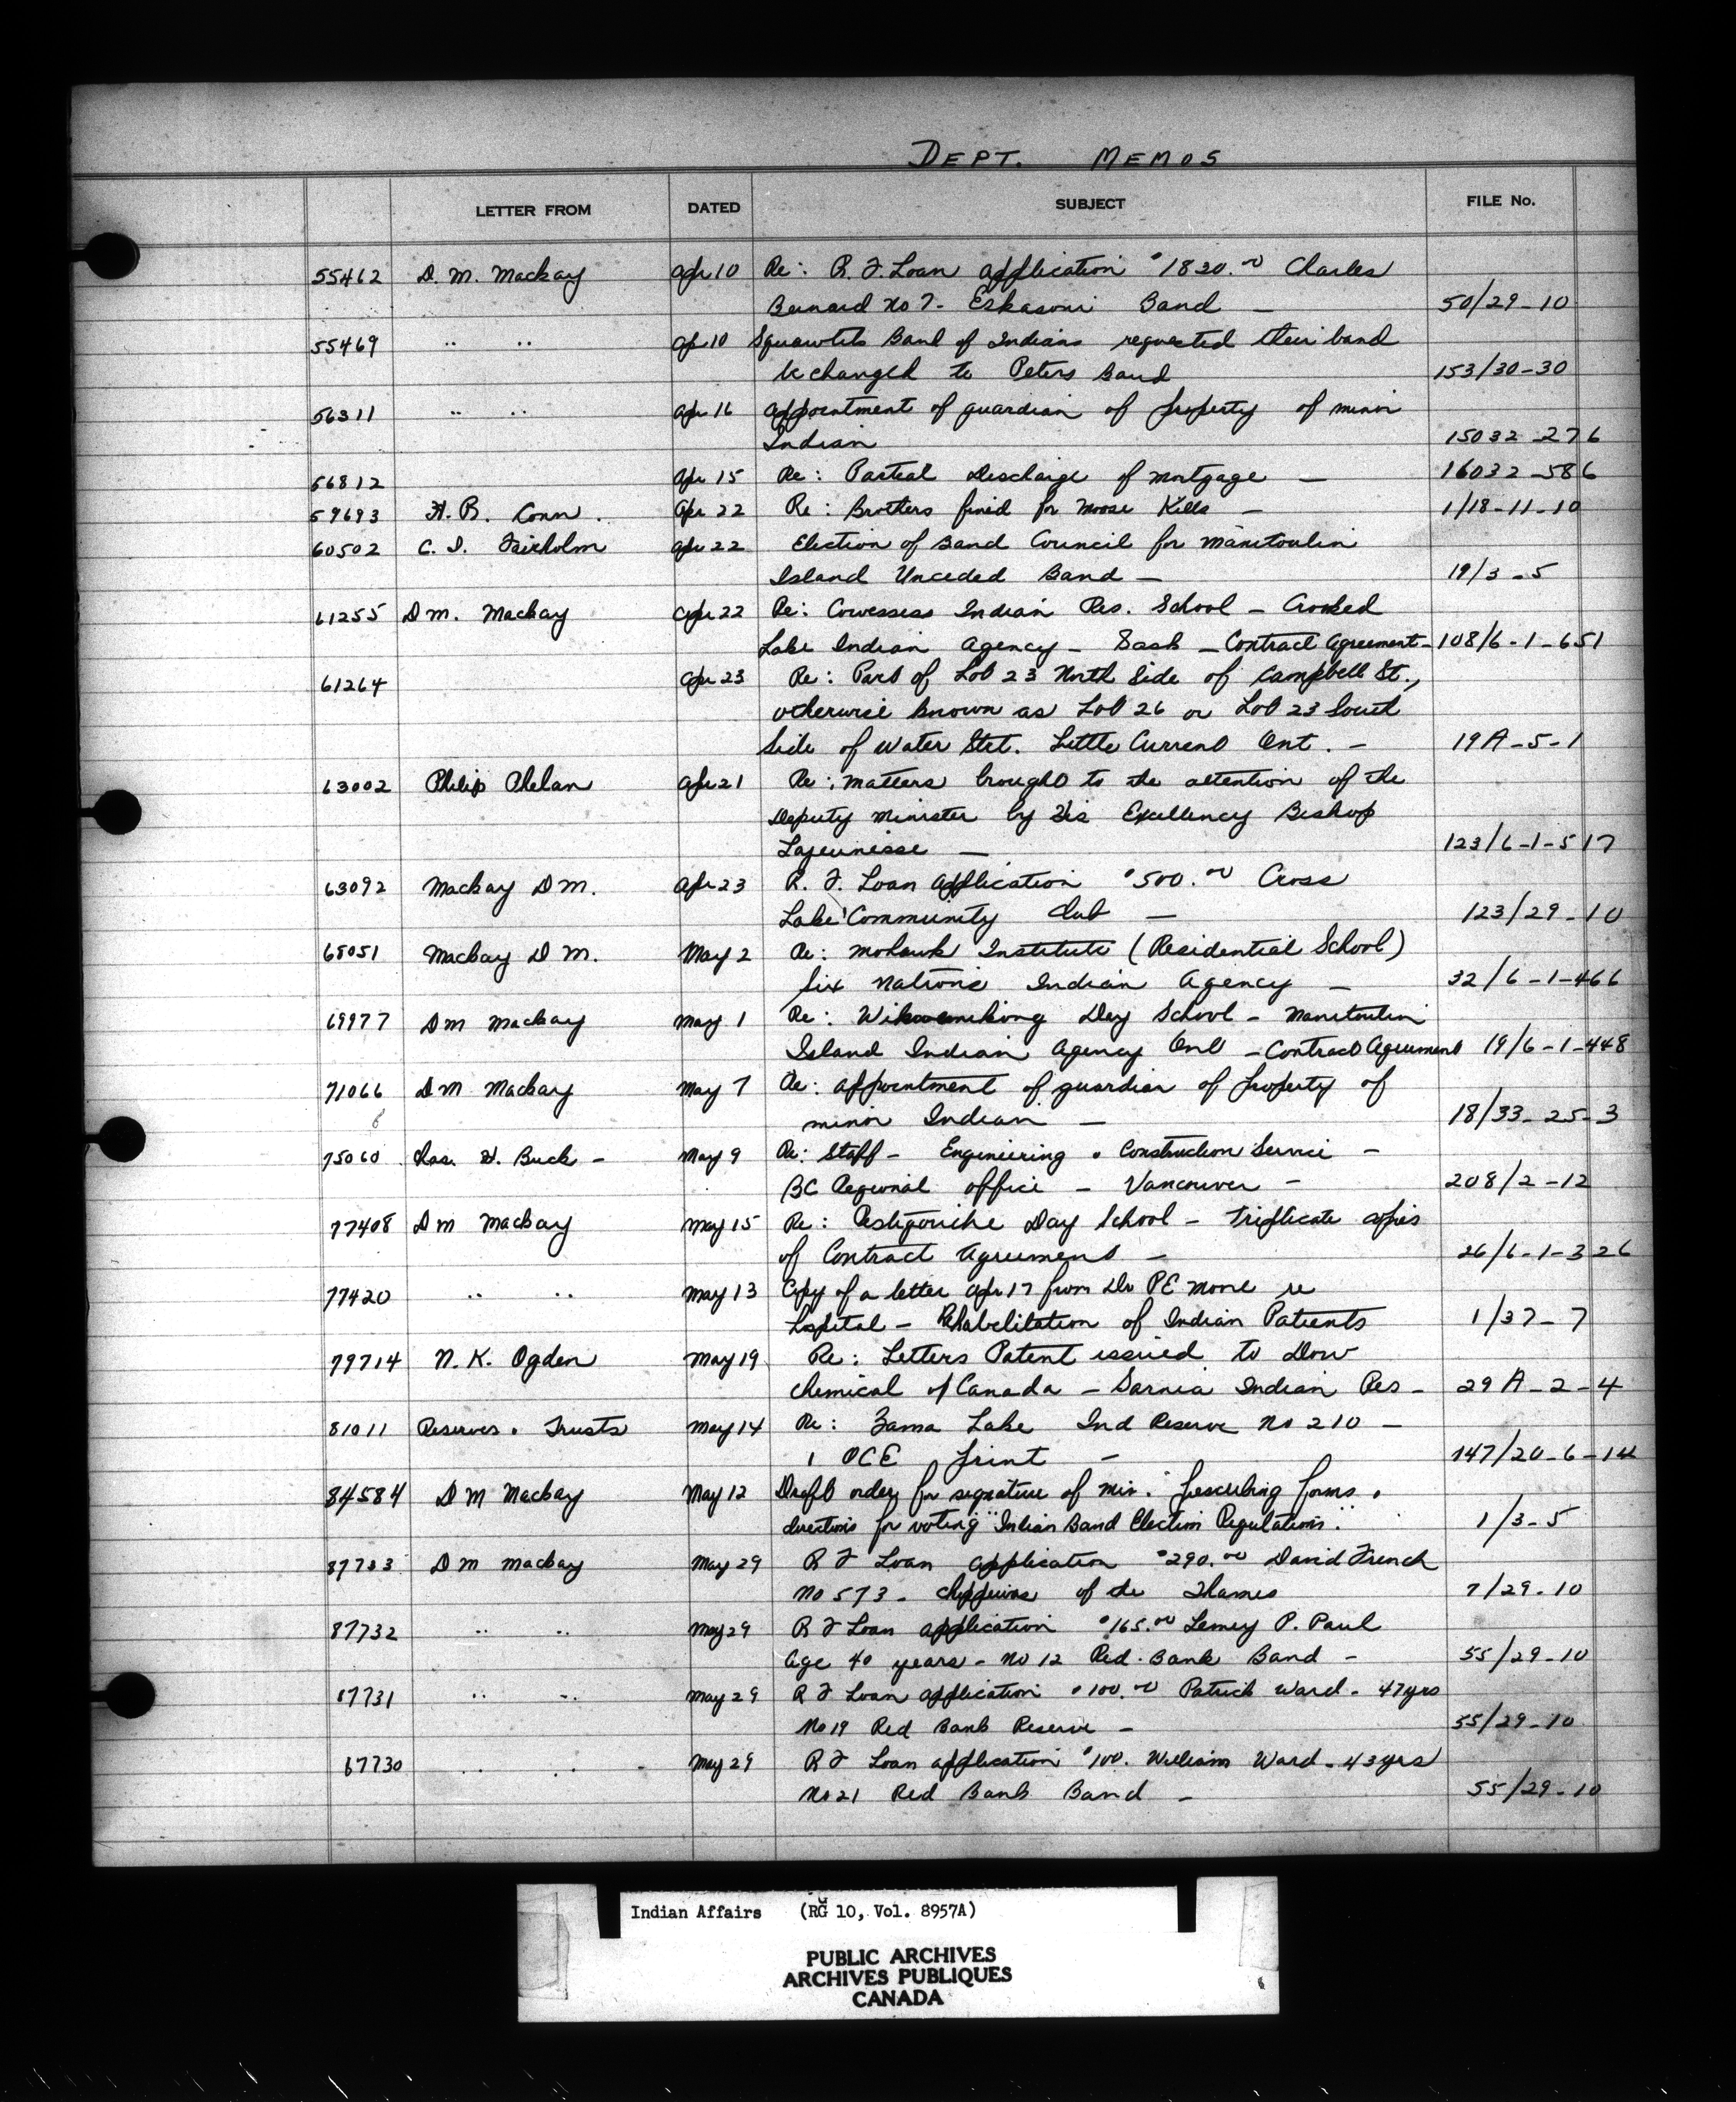 DEPT. MEMOS
LETTER FROM DATED SUBJECT FILE No.
55462 D. M. Mackay Apr 10 Re: R. F. Loan application $1820.00 Charles
Bernard No 7 - Eskasoni Band — 50/29-10
55469 " " Ap 10 Squawtits Band of Indians requested their band
be changed to Peters Band 153/30-30
56311 " " Apr 16 Appointment of guardian of property of minor
Indian 15032-276
56812 Apr 15 Re: Partial Discharge of Mortgage — 16032-586
59693 H. R. Conn. Apr 22 Re: Brothers fined for Moose Kills — 1/18-11-10
60502 C. I. Fairholm Apr 22 Election of Band Council for Manitoulin
Island Unceded Band — 19/3-5
61255 D M. Mackay Apr 22 Re: Cowessess Indian Res. School - Crooked
Lake Indian Agency - Sask - Contract Agreement - 108/6-1-651
61264 Apr 23 Re: Part of Lot 23 North Side of Campbell St.,
otherwise known as Lot 26 or Lot 23 South
Side of Water Str. Little Current Ont. - 19A-5-1
63002 Philip Phelan Apr 21 Re: Matters brought to the attention of the
Deputy Minister by His Excellency Bishop
Lajeunisse — 123/6-1-517
63092 Mackay D M. Apr 23 R. F. Loan application $500.00 Cross
Lake Community Club — 123/29-10
65051 Mackay D M. May 2 Re: Mohawk Institute (Residential School)
Six Nations Indian Agency — 32/6-1-466
69977 D M Mackay May 1 Re: Wikwemikong Day School - Manitoulin
Island Indian Agency Ont - Contract Agreement 19/6-1-448
71066 D M Mackay May 7 Re: Appointment of guardian of property of
minor Indian — 18/33-25-3
75060 Chas. H. Buck - May 9 Re: Staff - Engineering & Construction Service -
BC Regional office - Vancouver - 208/2-12
77408 D M Mackay May 15 Re: Restigouche Day School - triplicate copies
of Contract Agreement — 26/6-1-326
77420 " " May 13 Copy of a letter Apr 17 from Dr PE Moore re
hospital - Rehabilitation of Indian Patients 1/37-7
79714 N. K. Ogden May 19 Re: Letters Patent issued to Dow
Chemical of Canada - Sarnia Indian Res - 29A-2-4
81011 Reserves & Trusts May 14 Re: Zama Lake Ind Reserve No 210 -
1 OCE print - 147/20-6-14
84584 D M Mackay May 12 Draft order for signature of Min. "prescribing forms &
directions for voting "Indian Band Election Regulations". 1/3-5
87733 D M Mackay May 29 R F Loan application $290.00 David French
No 573 - Chippewas of the Thames 7/29-10
87732 " " May 29 R F Loan application $165.00 P. Paul
Age 40 years - No 12 Red Bank Band - 55/29-10
87731 " " May 29 R F Loan application $100.00 Patrick Ward - 47 yrs
No 19 Red Bank Reserve - 55/29-10
87730 " " May 29 R F Loan application $100. William Ward - 43 yrs
No 21 Red Bank Band - 55/29-10
Indian Affairs (RG 10, Vol. 8957A)
PUBLIC ARCHIVES
ARCHIVES PUBLIQUES
CANADA